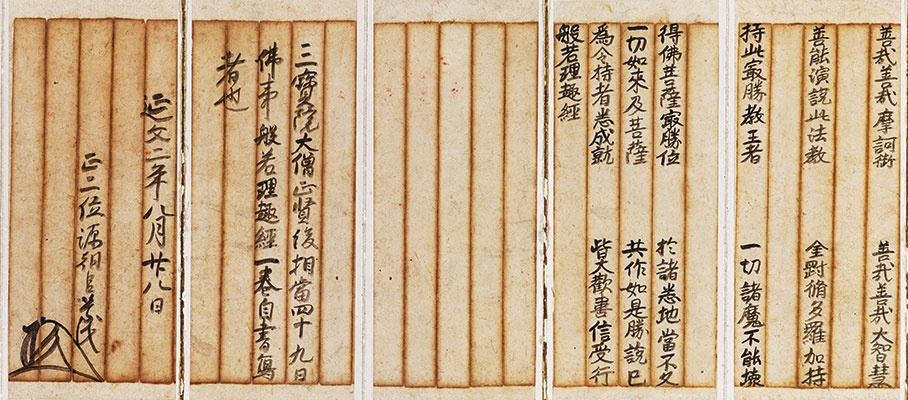 善哉善哉摩訶衍　善哉善哉大智慧
善能演說此法教　金對脩多羅加持
持此冣勝教王者　一切諸魔不能壞
得佛菩薩冣勝位　於諸悉地當不久
一切如來及菩薩　共作如是勝說已
為令持者悉成就　皆大歡喜信受行
般若理趣經
三寳院大僧正賢俊相當四十九日
佛事般若理趣經一卷自書寫
者也
延文二年八月廿八日
正二位源朝臣尊氏